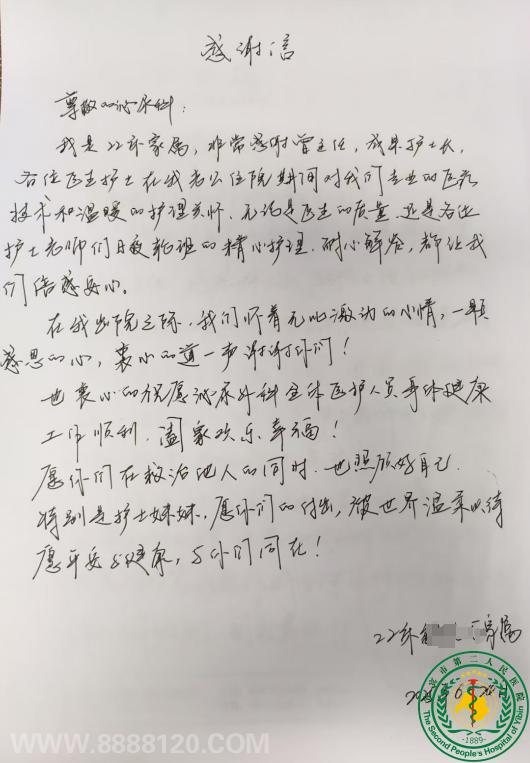 感谢信
尊敬的泌尿科：
我是22床家属，非常感谢曾主任，成华护士长，
各位医生护士在我老公住院期间对我们专业的医疗
技术和温暖的护理关怀。无论是医生的质量，还是各位
护士老师们日夜轮班的精心护理，耐心解答，都让我
们倍感安心。
在我出院之际，我们怀着无比激动的心情，一颗
感恩的心，衷心的道一声谢谢你们！
也衷心的祝愿泌尿外科全体医护人员身体健康
工作顺利，阖家欢乐幸福！
愿你们在救治他人的同时，也照顾好自己，
特别是护士妹妹，愿你们的付出，被世界温柔以待
愿平安与健康，与你们同在！
22床 家属
宜宾市第二人民医院
The Second People's Hospital of Yibin
-1889-
WWW.8888120.COM